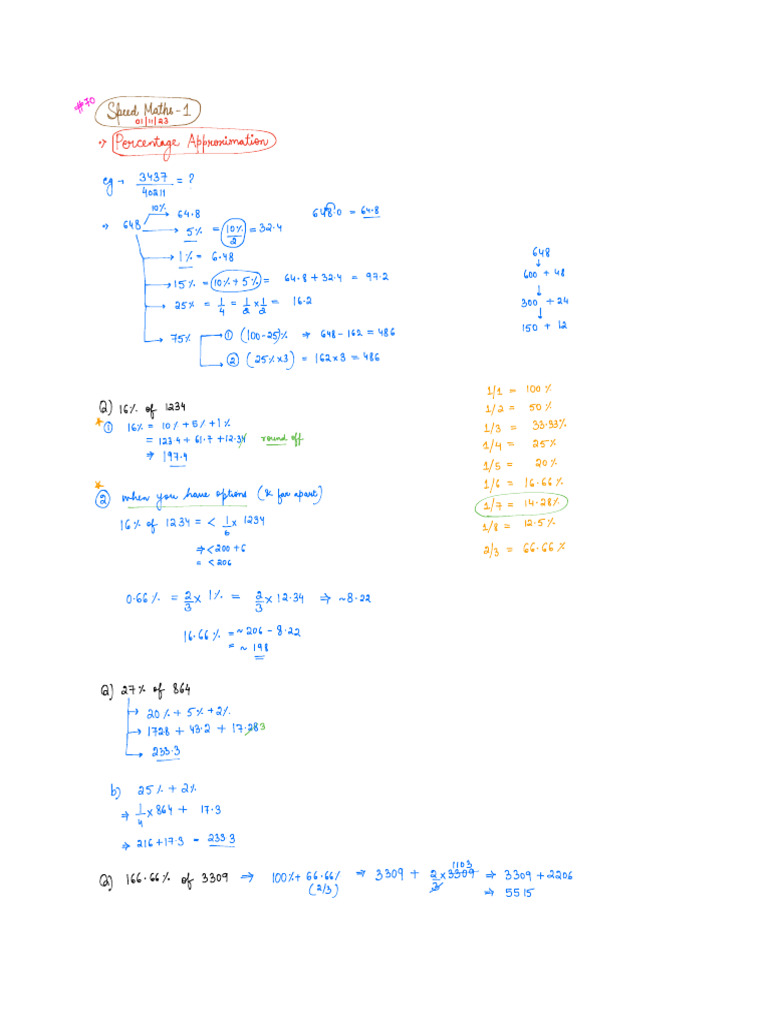 #70
Speed Maths-1
01/11/23
Percentage Approximation
eg → 3437/40211 = ?
→ 648
10% → 64.8
648.0 = 64.8
→ 5% = 10%/2 = 32.4
→ 1% = 6.48
→ 15% = 10% + 5% = 64.8 + 32.4 = 97.2
→ 25% = 1/4 = 1/2 x 1/2 = 16.2
→ 75%
→ ① (100-25)% ⇒ 648 - 162 = 486
→ ② (25% x 3) = 162 x 3 = 486
648
↓
600 + 48
↓
300 + 24
↓
150 + 12
1/1 = 100%
1/2 = 50%
1/3 = 33.33%
1/4 = 25%
1/5 = 20%
1/6 = 16.66%
1/7 = 14.28%
1/8 = 12.5%
2/3 = 66.66%
Q) 16% of 1234
① 16% = 10% + 5% + 1%
= 123.4 + 61.7 + 12.34 round off
⇒ 197.4
② When you have options (& far apart)
16% of 1234 = < 1/6 x 1234
⇒ < 200 + 6
= < 206
0.66% = 2/3 x 1% = 2/3 x 12.34 ⇒ ~8.22
16.66% = ~ 206 - 8.22
= ~ 198
Q) 27% of 864
→ 20% + 5% + 2%
→ 1728 + 43.2 + 17.283
→ 233.3
b) 25% + 2%
⇒ 1/4 x 864 + 17.3
⇒ 216 + 17.3 = 233.3
Q) 166.66% of 3309 ⇒ 100% + 66.66% (2/3) ⇒ 3309 + 2/3 x 3309 1103 ⇒ 3309 + 2206
⇒ 5515